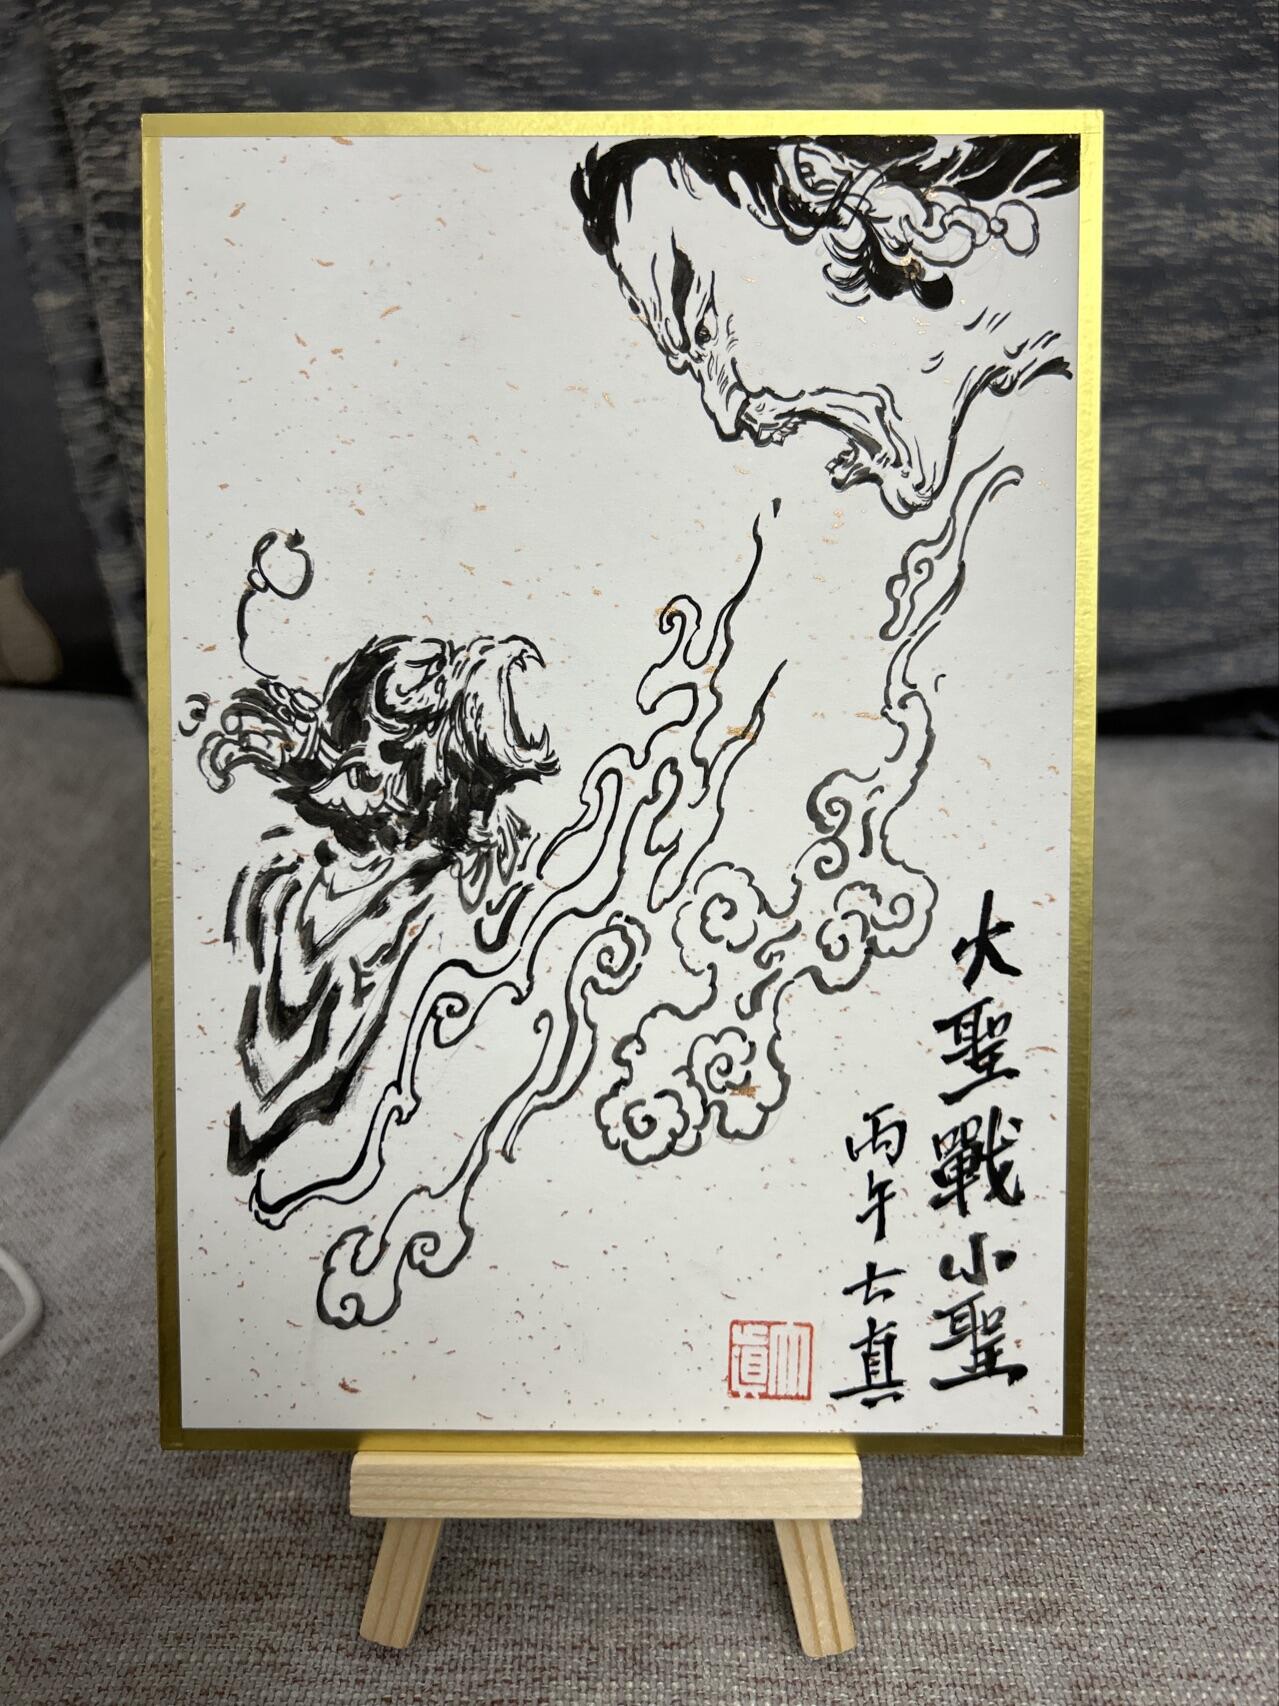 大聖戰小聖
丙午 真
眞